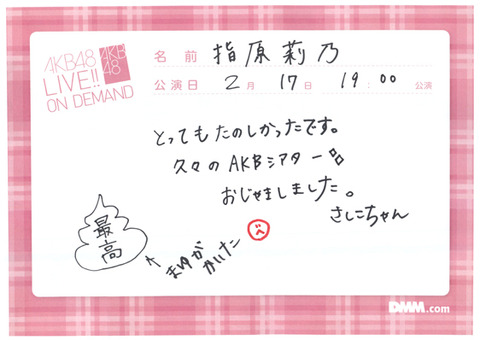 AKB48
LIVE!!
ON DEMAND
AKB
48
名前 指原莉乃
公演日 2月 17日 19:00 公演
とってもたのしかったです。
久々のAKBシアター
おじゃましました。
さしこちゃん
最高
まゆが
かいた
DMM.com